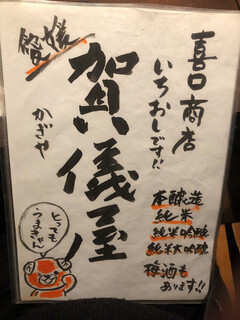 喜口商店
いちおしです!!
愛媛
賀儀屋
かぎや
本醸造
純米
純米吟醸
純米大吟醸
梅酒も
あります!!
とっても
うまきに!